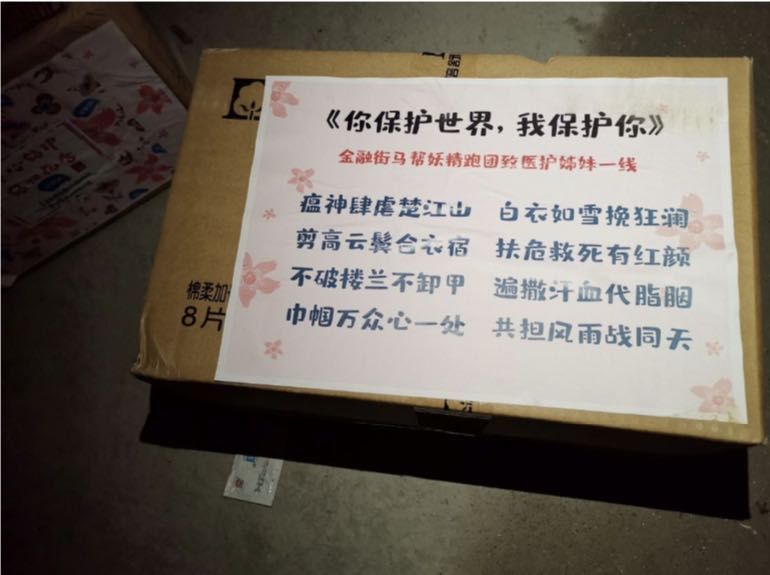 《你保护世界，我保护你》
金融街马帮妖精跑团致医护姊妹一线
瘟神肆虐楚江山 白衣如雪挽狂澜
剪高云鬓合衣宿 扶危救死有红颜
不破楼兰不卸甲 遍撒汗血代脂胭
巾帼万众心一处 共担风雨战同天
棉柔加
8片